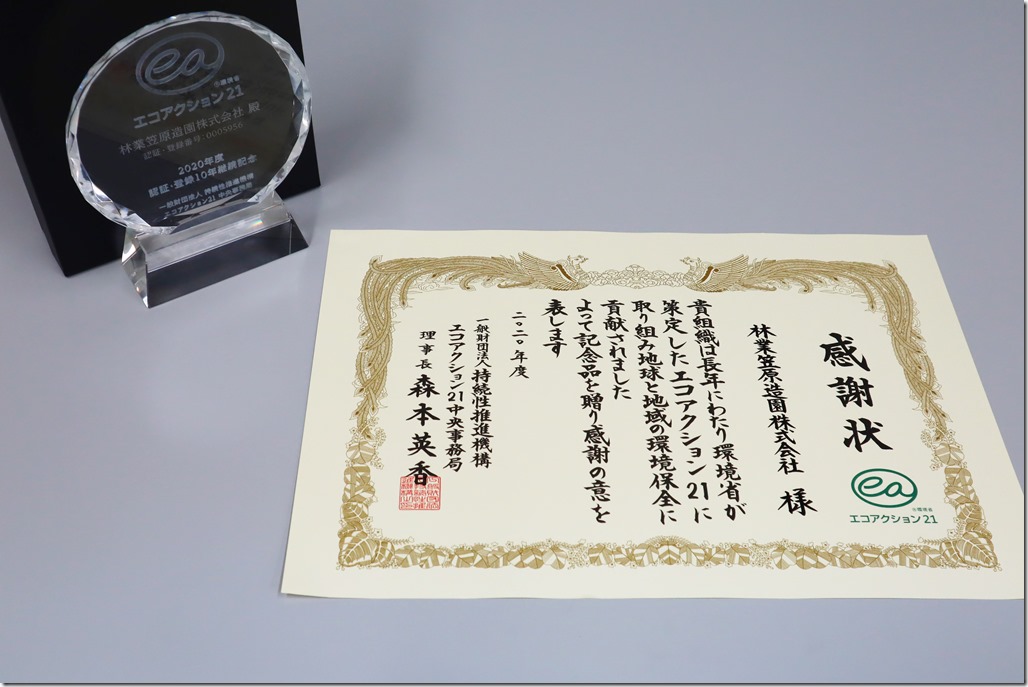 ea
©環境省
エコアクション21
林業笠原造園株式会社 殿
認証・登録番号:0005956
2020年度
認証・登録10年継続記念
一般財団法人 持続性推進機構
エコアクション21 中央事務局
感謝状
林業笠原造園株式会社 様
貴組織は長年にわたり環境省が
策定したエコアクション21に
取り組み地球と地域の環境保全に
貢献されました
よって記念品を贈り感謝の意を
表します
二〇二〇年度
一般財団法人 持続性推進機構
エコアクション21中央事務局
理事長 森本英香
ea
©環境省
エコアクション21